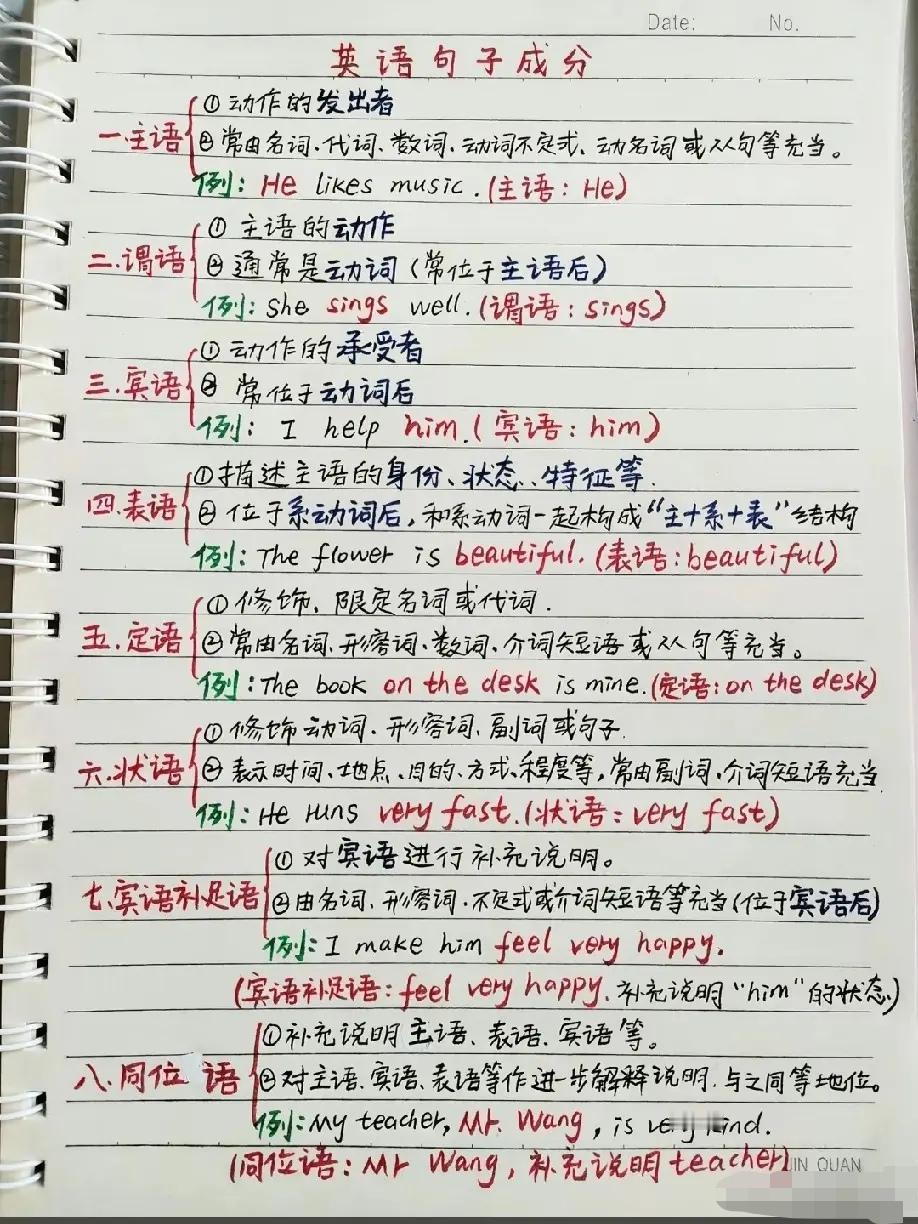 Date: No.
英语句子成分
①动作的发出者
一.主语
②常由名词、代词、数词、动词不定式、动名词或从句等充当。
例: He likes music.(主语: He)
①主语的动作
二.谓语
②通常是动词(常位于主语后)
例: She sings well.(谓语: sings)
①动作的承受者
三.宾语
②常位于动词后
例: I help him.(宾语: him)
①描述主语的身份、状态、特征等.
四.表语
②位于系动词后,和系动词一起构成“主+系+表”结构
例: The flower is beautiful.(表语: beautiful)
①修饰、限定名词或代词.
五.定语
②常由名词、形容词、数词、介词短语或从句等充当。
例: The book on the desk is mine.(定语: on the desk)
①修饰动词、形容词、副词或句子.
六.状语
②表示时间、地点、目的、方式、程度等,常由副词、介词短语充当
例: He runs very fast.(状语: very fast)
①对宾语进行补充说明。
七.宾语补足语
②由名词、形容词、不定式或介词短语等充当(位于宾语后)
例: I make him feel very happy.
(宾语补足语: feel very happy.补充说明“him”的状态)
①补充说明主语、表语、宾语等。
八.同位语
②对主语、宾语、表语等作进一步解释说明.与之同等地位。
例: My teacher, Mr. Wang, is very kind.
(同位语: Mr Wang, 补充说明 teacher)
JIN QUAN